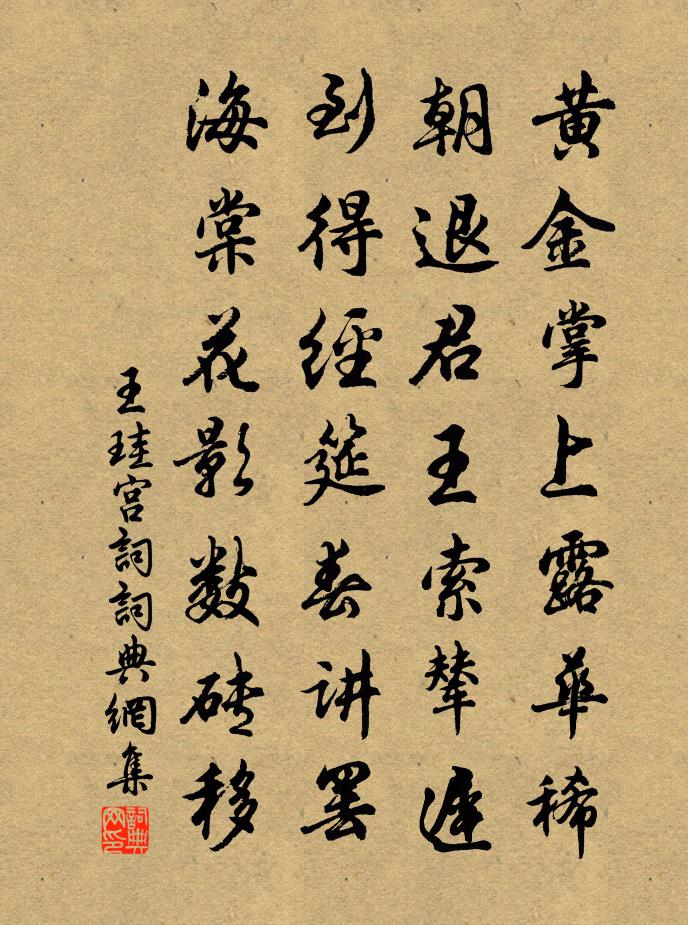 黄金掌上露華稀
朝退君王索輦遲
到得經筵春讲罢
海棠花影数砖移
王珪宫詞詞典網集
詞典网印